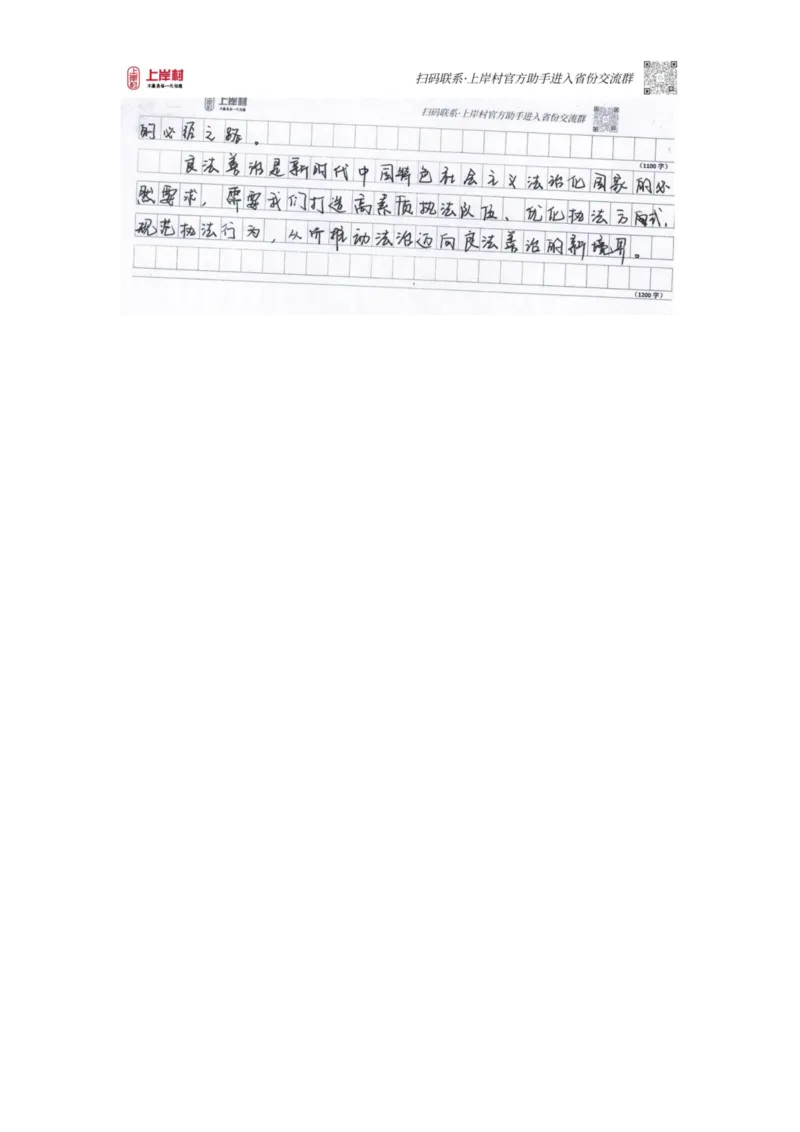 上岸村
不辜负每一代知遇
扫码联系·上岸村官方助手进入省份交流群
上岸村
扫码联系·上岸村官方助手进入省份交流群
的必径之路。
（1100 字）
良法善治是新时代中国特色社会主义法治化国家的必
然要求，需要我们打造高素质执法队伍、优化执法方式，
规范执法行为，从而推动法治迈向良法善治的新境界。
（1200 字）